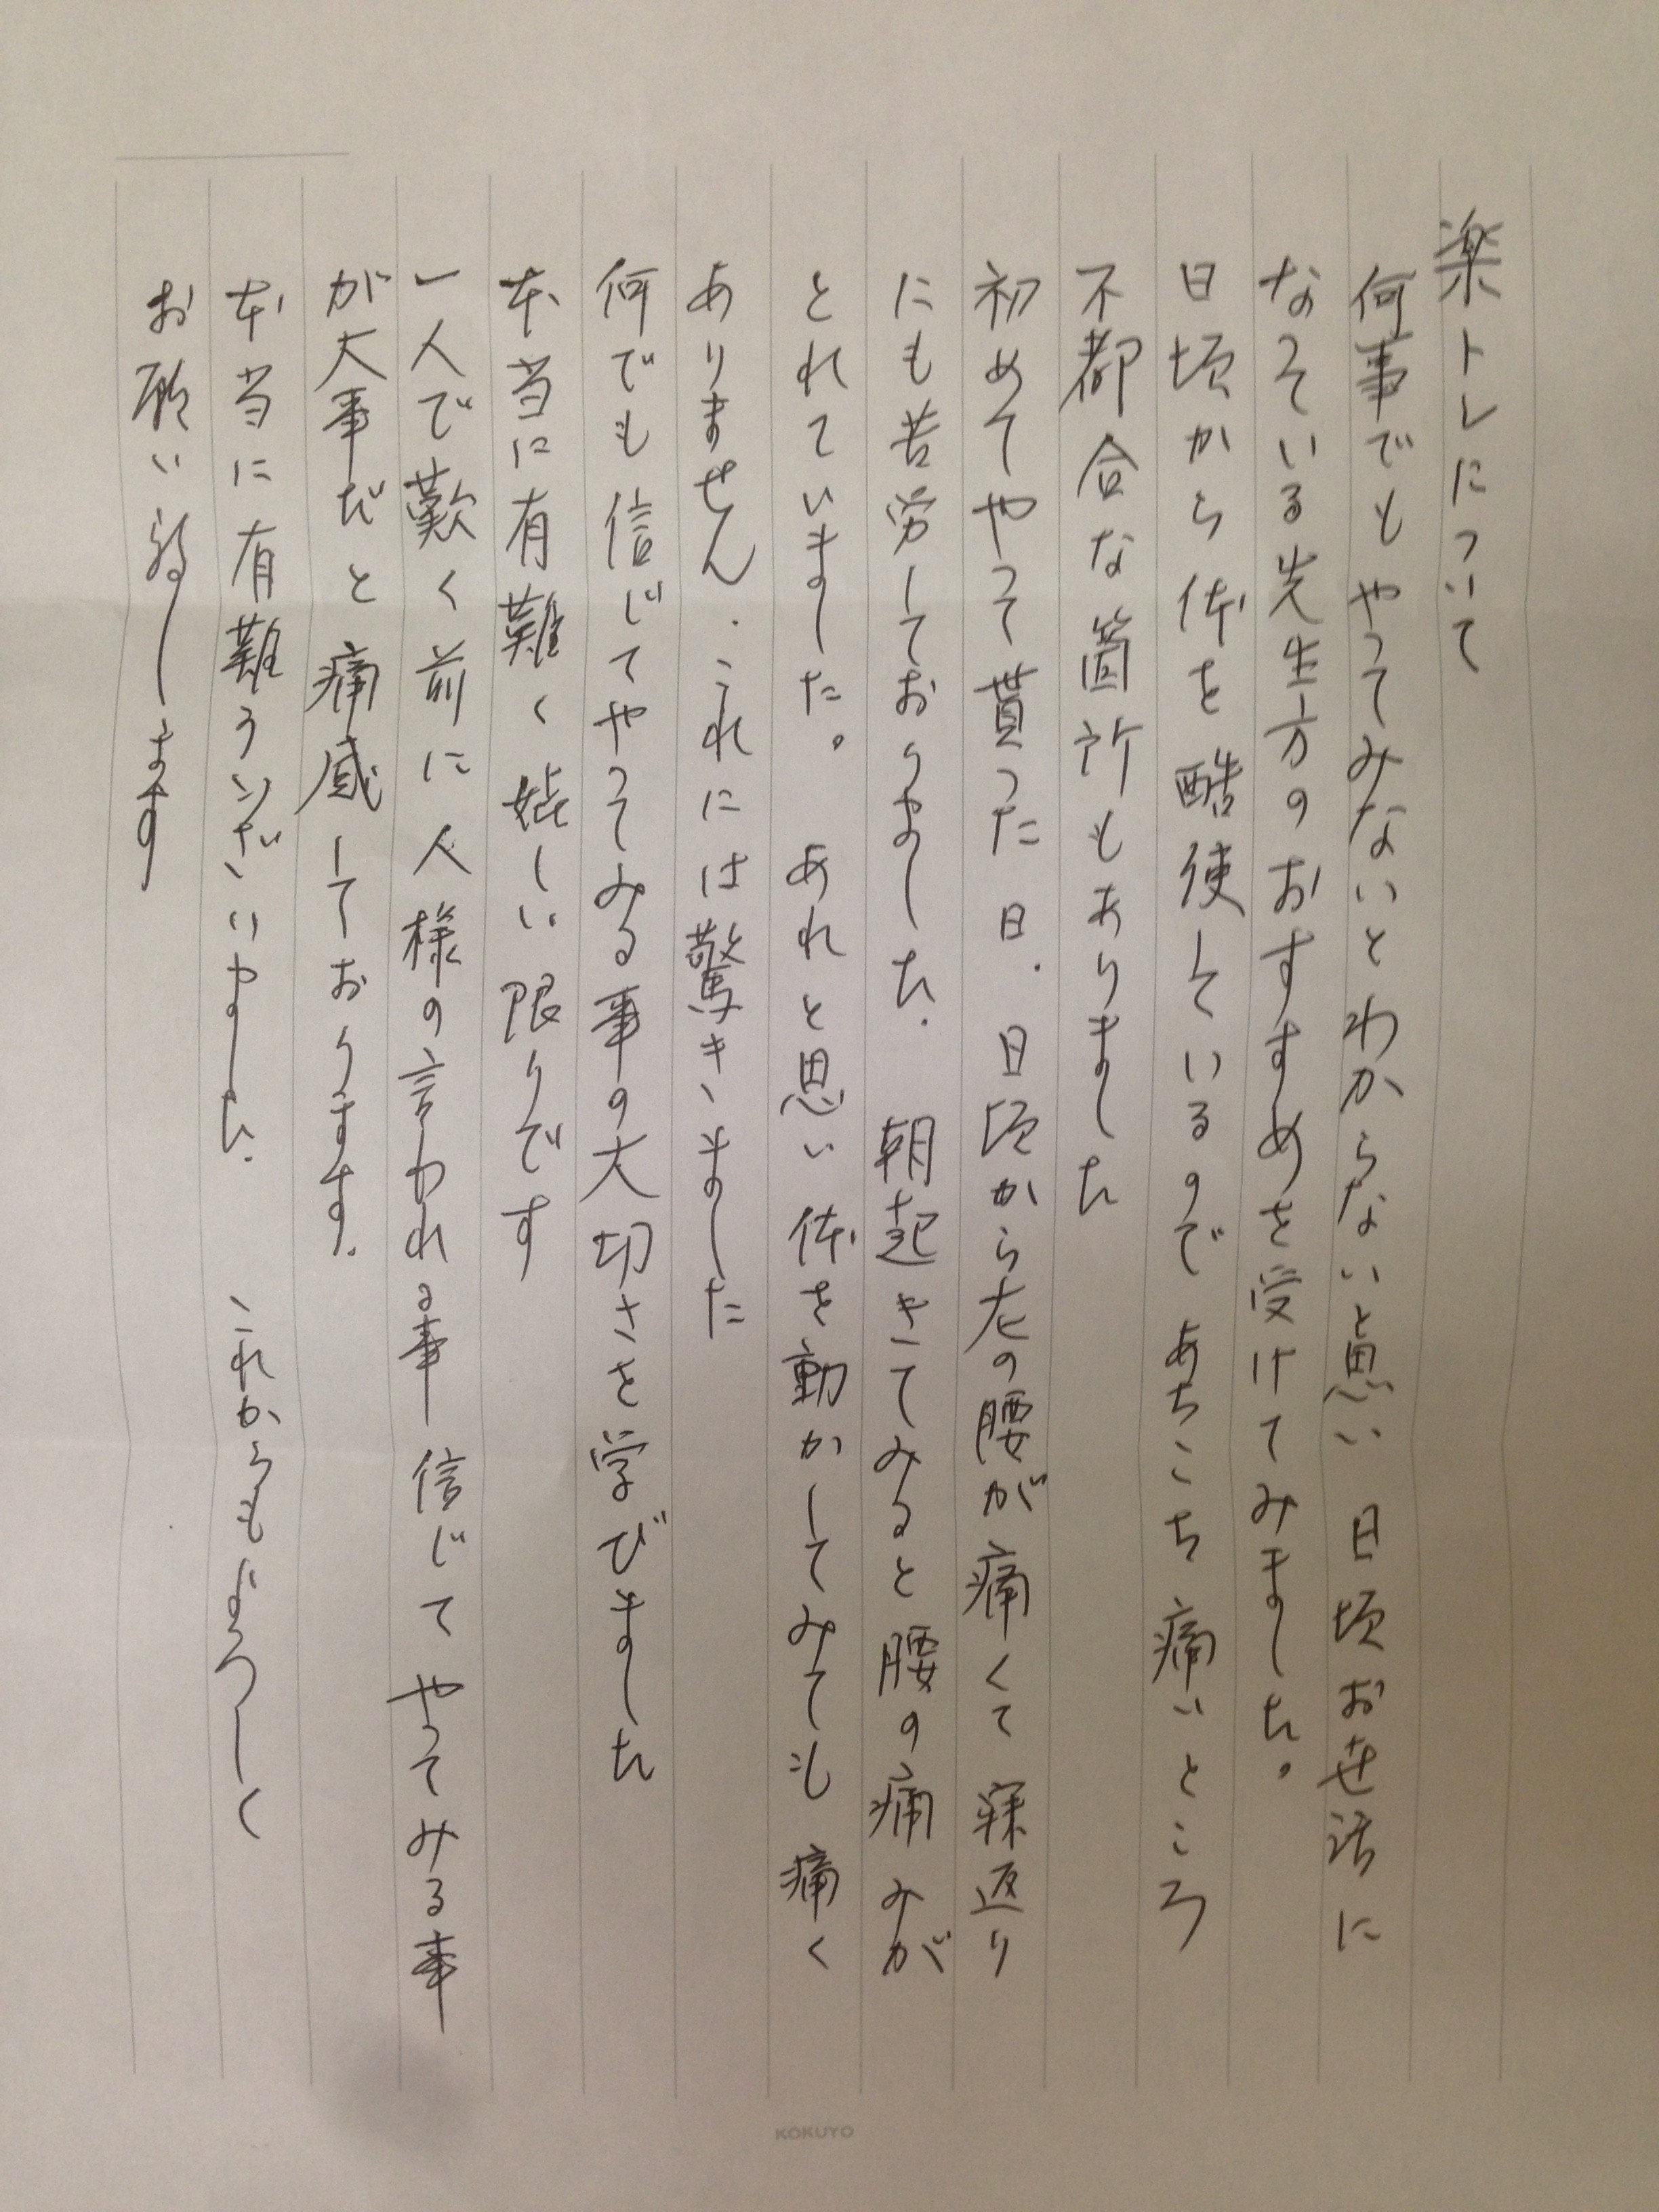 楽トレについて
何事でもやってみないとわからないと思い 日頃お世話に
なっている先生方のおすすめを受けてみました。
日頃から体を酷使しているので あちこち痛いところ
不都合な箇所もありました
初めてやって貰った日、日頃から左の腰が痛くて寝返り
にも苦労しておりました、 朝起きてみると腰の痛みが
とれていました。 あれと思い体を動かしてみても痛く
ありません、これには驚きました
何でも信じてやってみる事の大切さを学びました
本当に有難く嬉しい限りです
一人で歎く前に人様の言われる事信じてやってみる事
が大事だと痛感しております。
本当に有難うございました、 これからもよろしく
お願い致します
KOKUYO